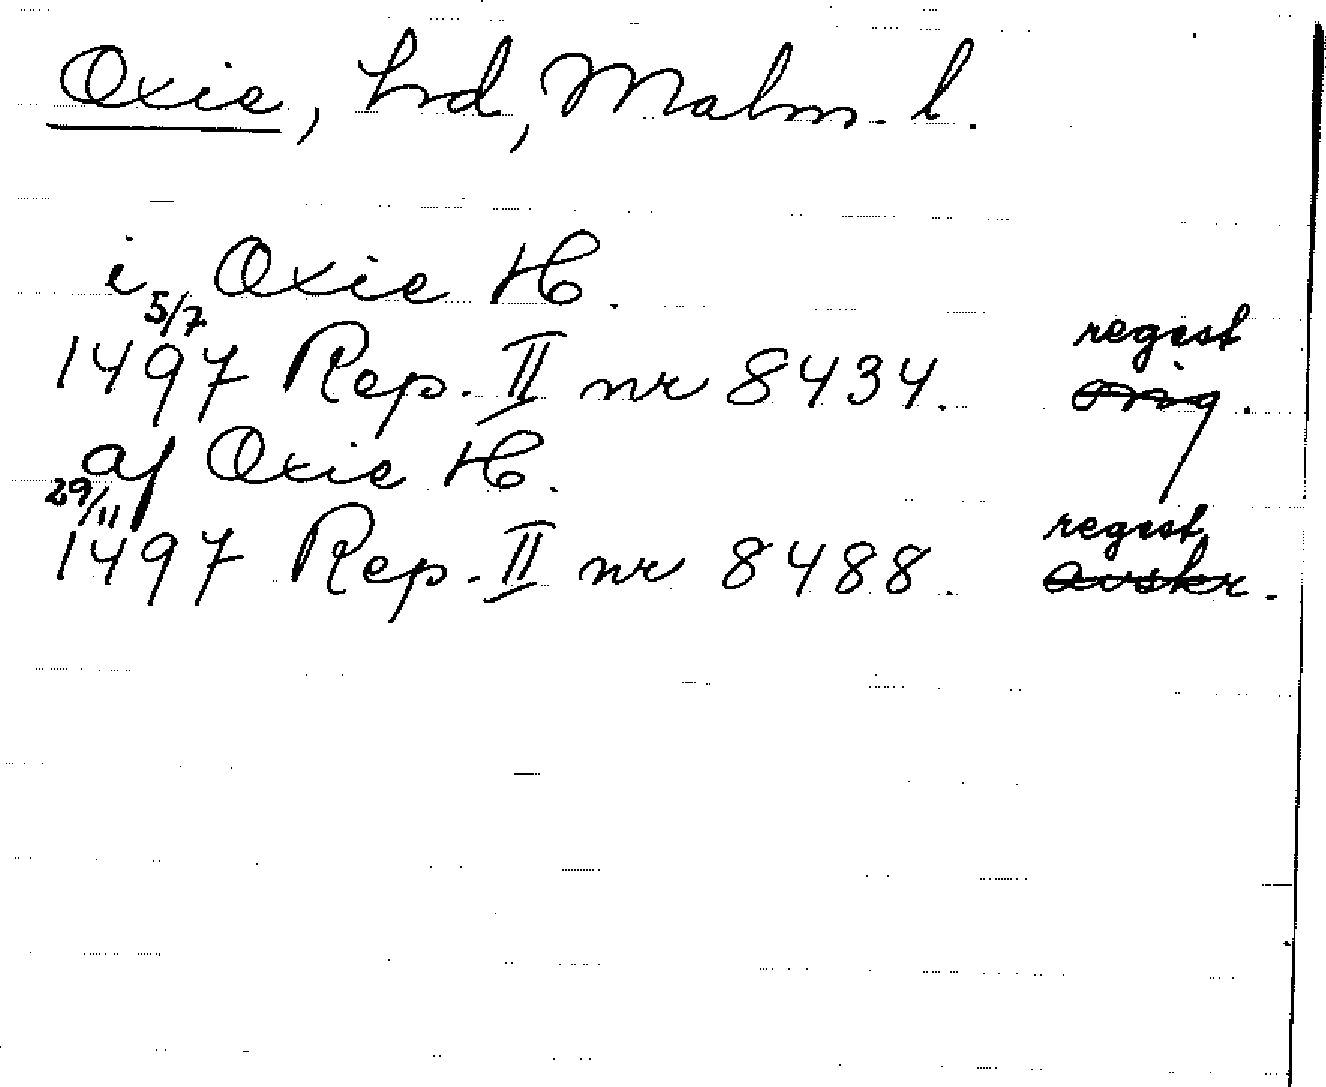 Oxie, hrd, Malm. l.
i Oxie H.
5/7
1497 Rep. II nr 8434. regest
orig.
af Oxie H.
29/11
1497 Rep. II nr 8488. regest
avskr.